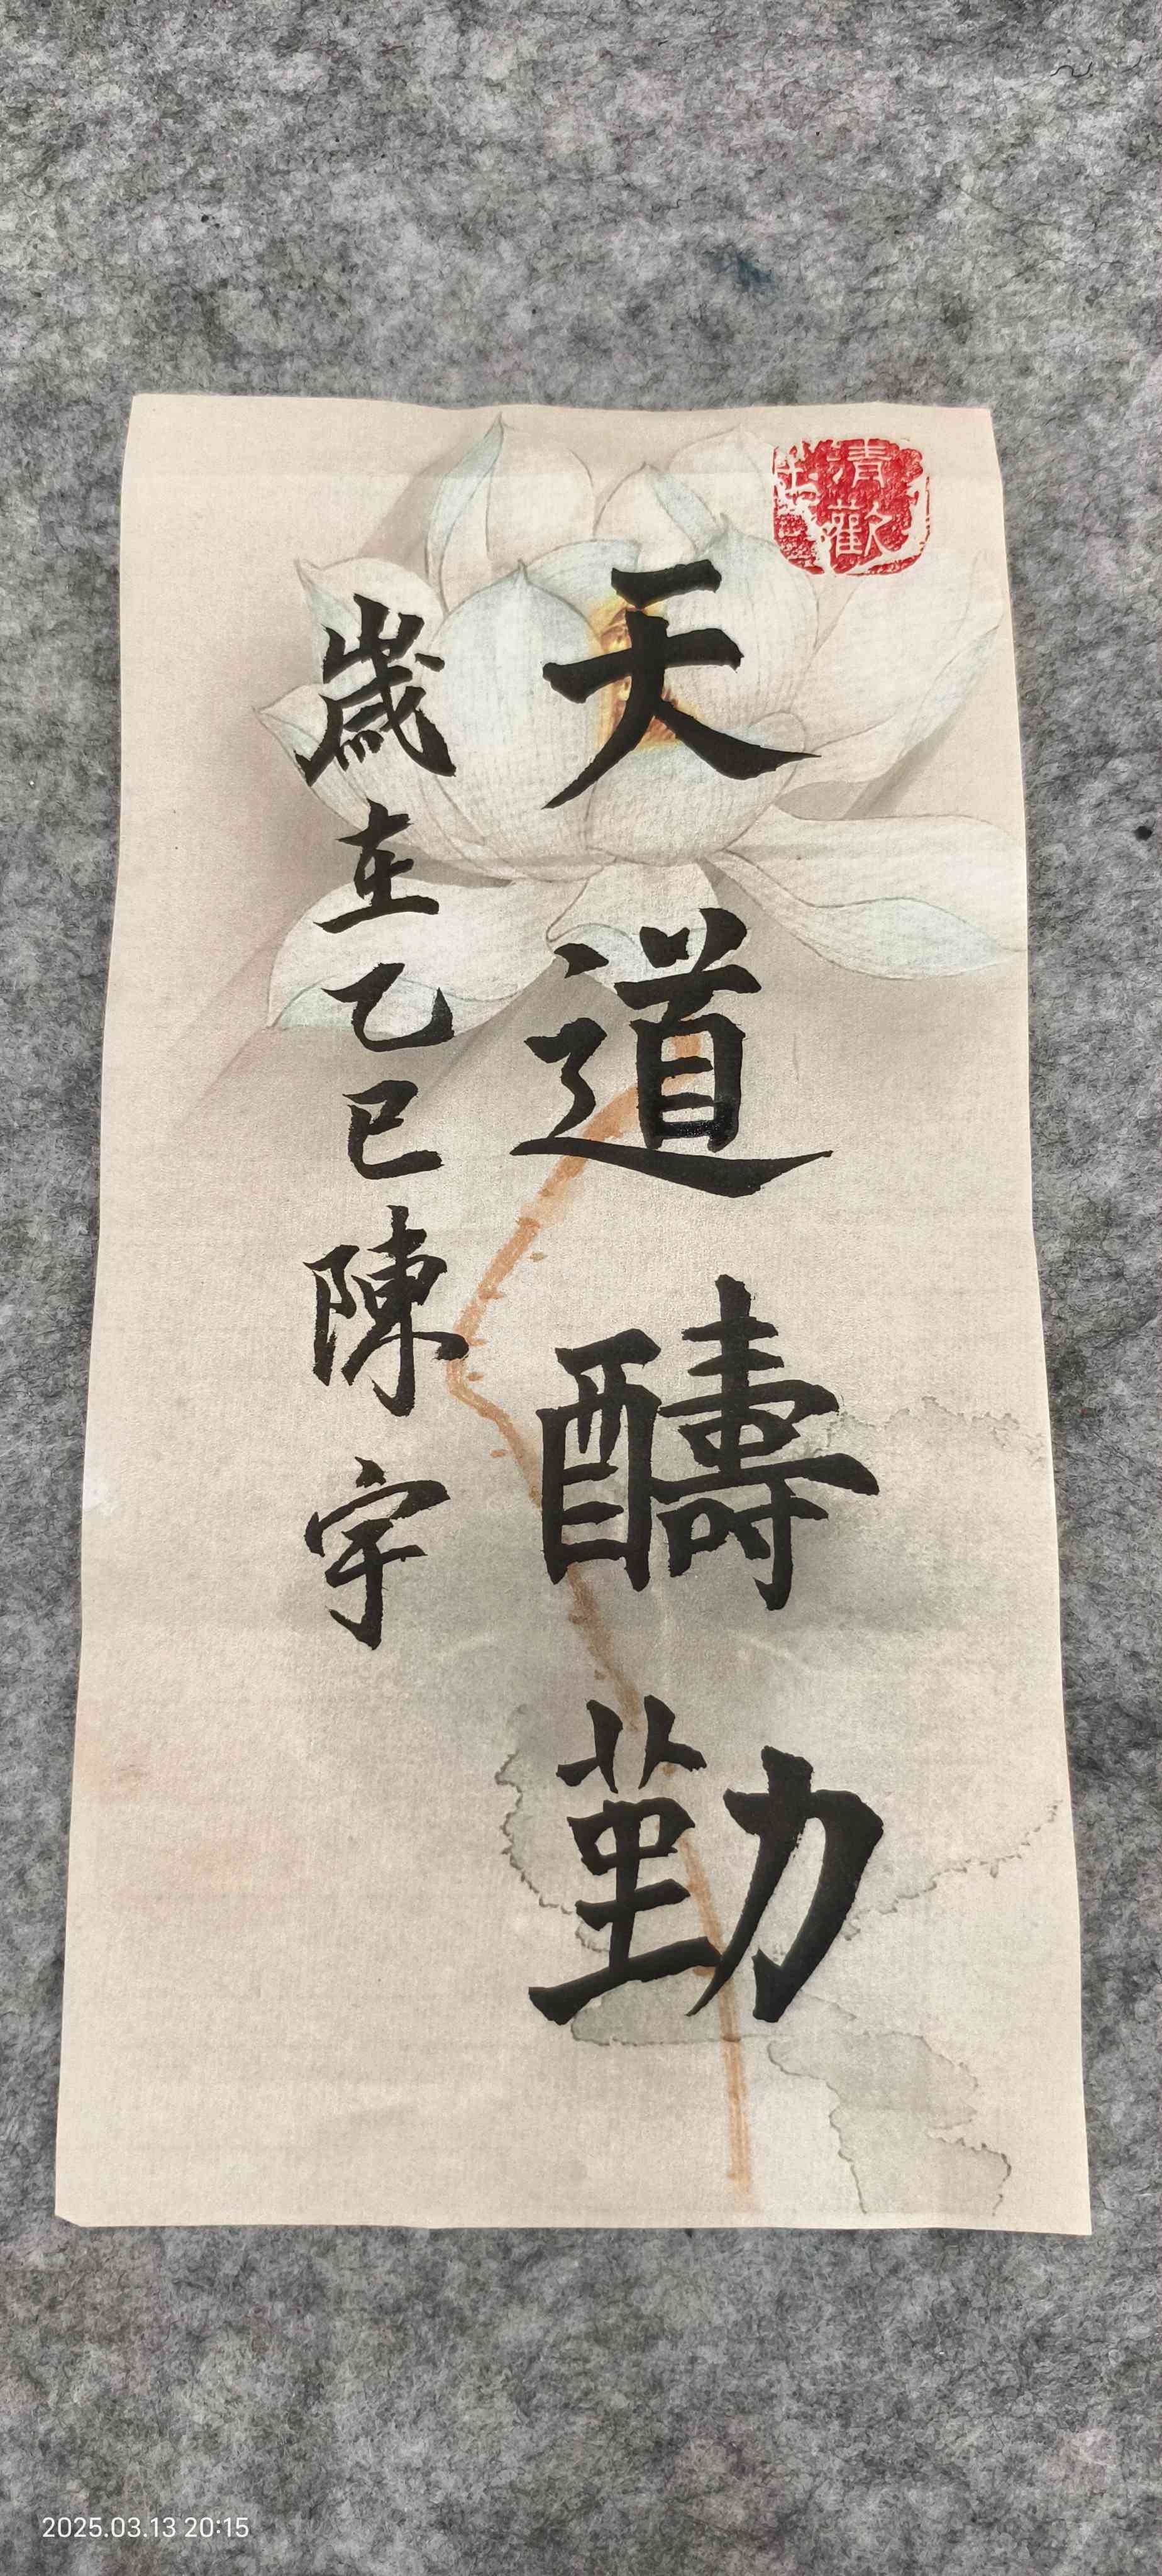 清歡
天道醻勤
歲在乙巳陳宇
2025.03.13 20:15